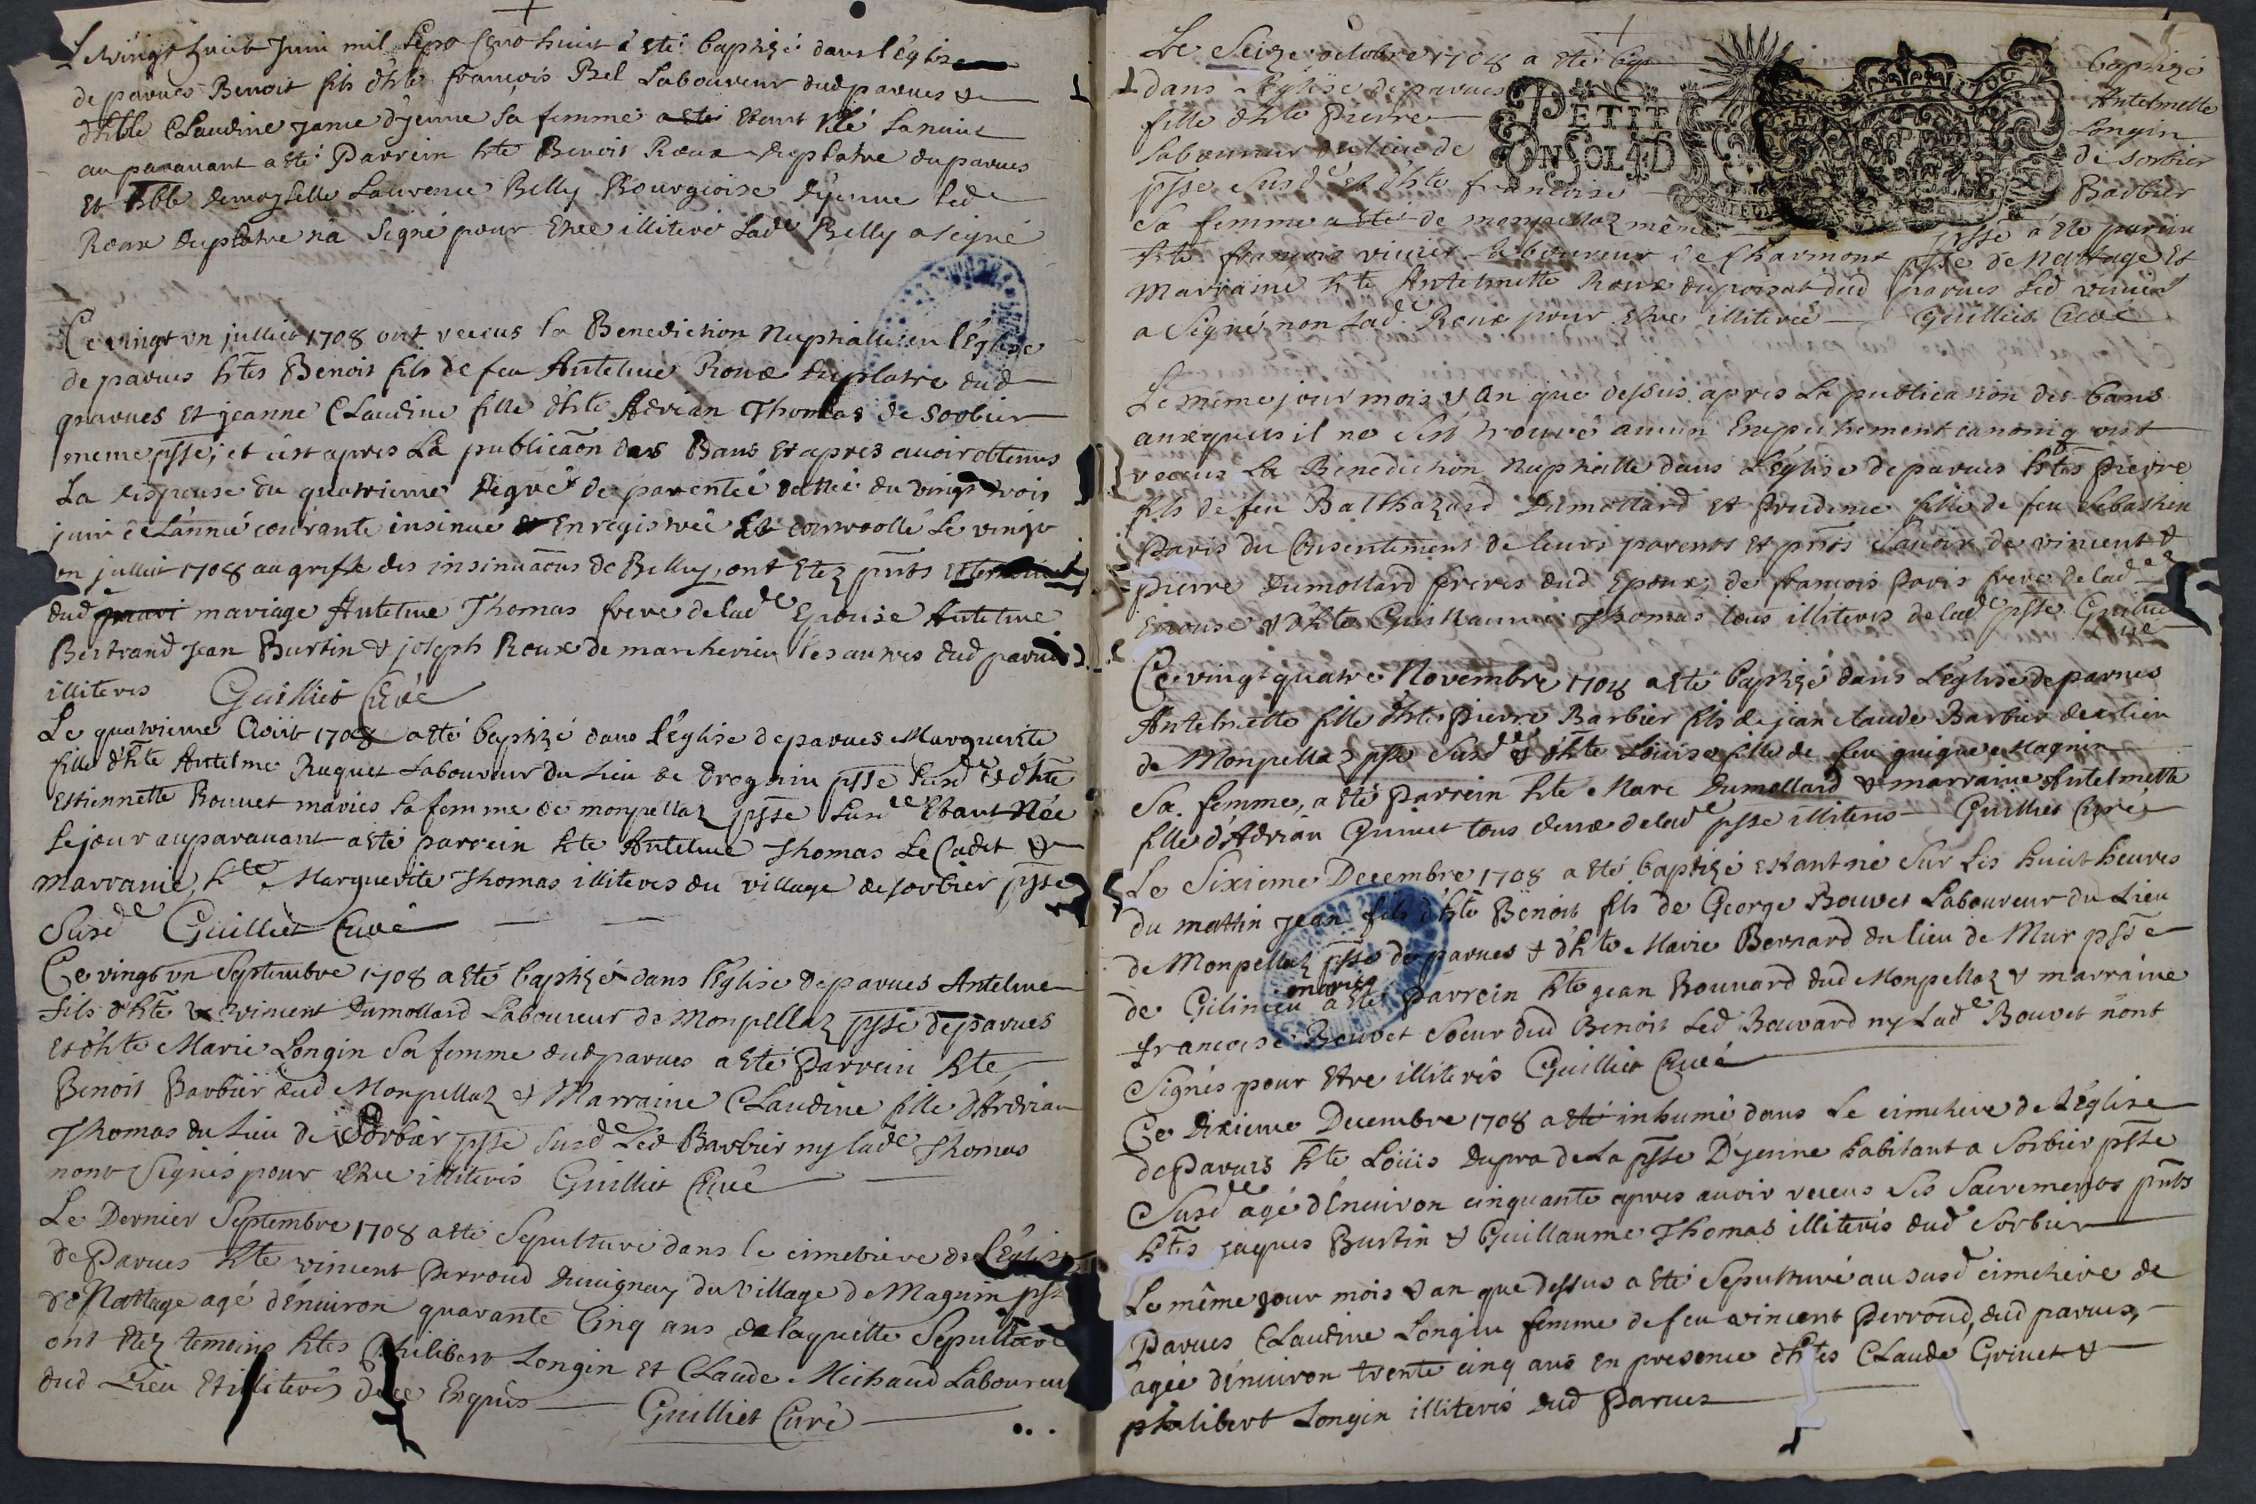 Le vingt huit Juin mil sept cent huit a esté baptizé dans l'église
de parves Benoit fils d'hble françois Bel Laboureur dud parves &
d'hble Claudine Jance d'yenne sa femme a esté étant né la nuit
auparavant a esté Parrein hte Benoit Roux duplatre du parves
et hble demoyselle Laurence Billy Bourgioise d'yenne led
Roux duplatre n'a signé pour être illiteré Lade Billy a signé
Ce vingt un juillet 1708 ont receus la Benediction Nuptialle en l'église
de parves htes Benoit fils de feu Antelme Roux duplatre dud
parves et jeanne Claudine fille d'hte Adrian Thomas de Sorbier
meme psse, et c'est apres La publicaõn des Bans et apres avoir obtenus
La dispense du quatrieme degré de parentée dattée du vingt trois
juin de L'année courante insinué et Enregistrée et controollé Le vingt
un juillet 1708 au greffe des insinuãons de Belley, ont Etez pñts
dud mariage Antelme Thomas frere de lade Epouse Antelme
Bertrand Jean Burtin & joseph Roux de marcherieu les autres dud parves
illiteres Guilliet Curé
Le quatrieme Août 1708 a esté baptizé dans l'église de parves Marguerite
fille d'hte Antelme Ruquet Laboureur du Lieu de Drognin psse susde et d'hte
Estiennette Bouvet mariés sa femme de monpellaz psse susde Etant Née
Lejour auparavant a esté parrein hte Antelme Thomas Le Cadet &
marraine, hte Marguerite Thomas illiteres du village de sorbier psse
Susde Guilliet Curé
Ce vingt un Septembre 1708 a esté baptizé dans l'église de parves Antelme
fils d'hte vincent Dumollard Laboureur de Monpellaz psse de parves
et d'hte Marie Longin Sa femme dud parves a esté Parrein hte
Benoit Barbier dud Monpellaz & Marraine Claudine fille d'Adrian
Thomas du Lieu de Sorbier psse susde Led Barbier ny lade Thomas
n'ont signés pour être illiterés Guilliet Curé
Le Dernier Septembre 1708 a esté Sepulturé dans le cimetiere de l'église
de Parves hte vincent Perroud Duvignay du Village de Magnin psse
de Nattage agé d'environ quarante Cinq ans de laquelle Sepulture
ont Etez temoins htes Philibert Longin et Claude Michaud Laboureurs
dud Lieu et illiterés de ce Enquis Guilliet Curé
Le Seize octobre 1708 a esté bap baptizé
dans L'église de parves PETIT Antelmette
fille d'hte Pierre ON SOL 4 D Longin
laboureur du lieu de de sorbier
psse susde et d'hte francoise Barbier
Sa femme a esté de monpellaz même psse a esté parein
hte françois vinier Laboureur de Charmont psse de Nattage et
Marraine hte Antelmette Roux dupoisat dud parves Led vinier
a Signé, non Lade Roux pour être illiterée Guilliet Curé
Le même jour mois & an que dessus apres La publication des bans
auxquels il ne s'est trouvé aucun Empechement canoniq ont
receus La Benediction Nuptialle dans L'église de parves htes pierre
fils de feu Balthazard Dumollard et prudence fille de feu Sebastien
Paris du Consentement de leurs parents et pñts sçavoir de vincent &
pierre Dumollard freres dud Epoux, de françois Paris frere de lade
Epouse & d'hte Guillaume Thomas tous illiterés de lade psse Guilliet
Curé
Ce vingt quatre Novembre 1708 a esté baptizé dans L'église de parves
Antelmette fille d'hte Pierre Barbier fils de jean claude Barbier du lieu
de Monpellaz psse susde & d'hte Loüise fille de feu guigue Magnin
Sa femme, a esté Parrein hte Marc Dumollard & marraine Antelmette
fille d'Adrian Grinet tous deux de lade psse illiterés Guilliet Curé
Le Sixieme Decembre 1708 a esté baptizé estant né Sur Les huit heures
du mattin jean fils d'hte Benoit fils de George Bouvet Laboureur du Lieu
de Monpellaz psse de parves & d'hte Marie Bernard du lieu de Mur psse
de Gilinieu mariés a esté Parrein hte jean Bouvard dud Monpellaz & marraine
francoise Bouvet soeur dud Benoit Led Bouvard ny Lade Bouvet n'ont
signés pour être illiterés Guilliet Curé
Ce Dixieme Decembre 1708 a esté inhumé dans Le cimetiere de L'église
de Parves hte Loüis Dupra de La psse D'yenne habitant a Sorbier psse
Susde agé d'Environ cinquante apres avoir receus Ses Sacrements pñts
htes jaques Burtin & Guillaume Thomas illiterés dud Sorbier
Le même jour mois & an que dessus a esté Sepulturé au susd cimetiere de
Parves Claudine Longin femme de feu vincent Perroud, dud parves,
agée d'environ trente cinq ans en presence d'htes Claude Grinet &
philibert Longin illiterés dud Parves